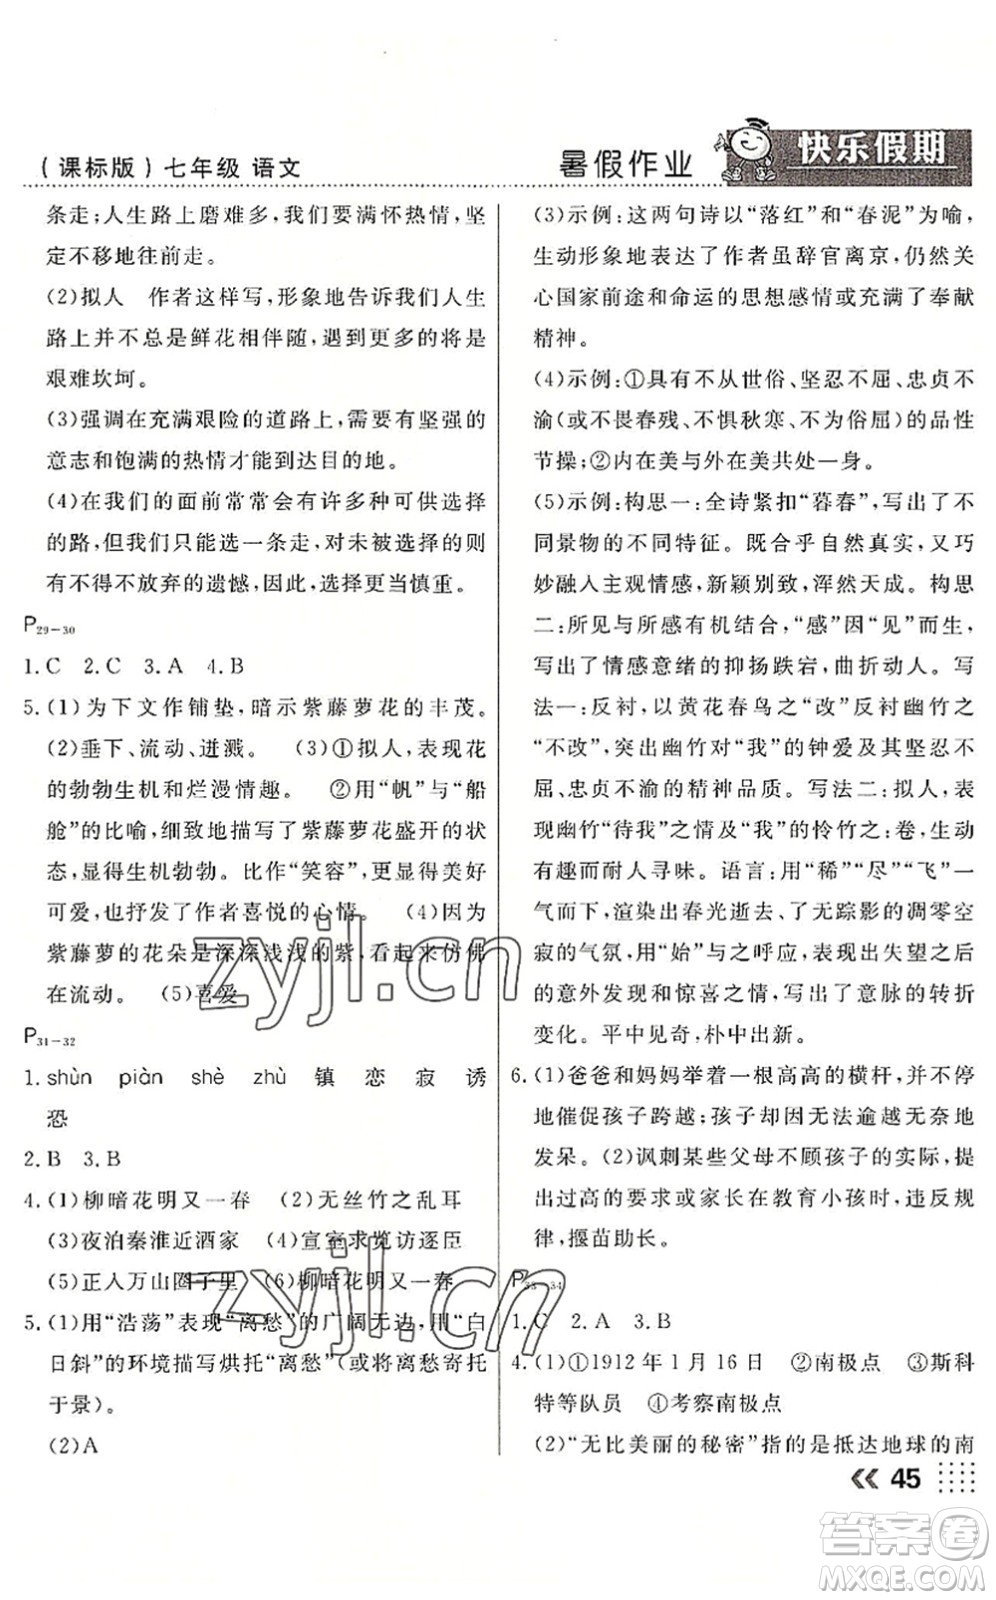 (课标版)七年级 语文
暑假作业
快乐假期
条走;人生路上磨难多,我们要满怀热情,坚
定不移地往前走。
(2)拟人 作者这样写,形象地告诉我们人生
路上并不总是鲜花相伴随,遇到更多的将是
艰难坎坷。
(3)强调在充满艰险的道路上,只有坚强的
意志和饱满的热情才能到达目的地。
(4)在我们的面前常常会有许多种可供选择
的路,但我们只能选一条走,对未被选择的则
有不得不放弃的遗憾,因此,选择更当慎重。
P29-30
1.C 2.C 3.A 4.B
5.(1)为下文作铺垫,暗示紫藤萝花的丰茂。
(2)垂下、流动、迸溅。 (3)①拟人,表现花
的勃勃生机和烂漫情趣。 ②用“帆”与“船
舱”的比喻,细致地描写了紫藤萝花盛开的状
态,显得生机勃勃。比作“笑容”,显得美好
可爱,也抒发了作者喜悦的心情。 (4)因为
紫藤萝的花朵是深深浅浅的紫,看起来仿佛
在流动。 (5)喜爱
P31-32
1.shùn piàn shè zhù 镇 恋 寂 诱
恐
2.B 3.B
4.(1)柳暗花明又一春 (2)无丝竹之乱耳
(3)夜泊秦淮近酒家 (4)宣室求贤访逐臣
(5)正入万山圈子里 (6)柳暗花明又一春
5.(1)用“浩荡”表现“离愁”的广阔无边,用“白
日斜”的环境描写烘托“离愁”(或将离愁寄托
于景)。
(2)A
(3)示例:这两句诗以“落红”和“春泥”为喻,
生动形象地表达了作者虽辞官离京,仍然关
心国家前途和命运的思想感情或充满了奉献
精神。
(4)示例:①具有不从世俗、坚忍不屈、忠贞不
渝(或不畏春残、不惧秋寒、不为俗屈)的品性
节操;②内在美与外在美共处一身。
(5)示例:构思一:全诗紧扣“暮春”,写出了不
同景物的不同特征。既合乎自然真实,又巧
妙融人主观情感,新颖别致,浑然天成。构思
二:所见与所感有机结合,“感”因“见”而生,
写出了情感意绪的抑扬跌宕,曲折动人。写
法一:反衬,以黄花春鸟之“改”反衬幽竹之
“不改”,突出幽竹对“我”的钟爱及坚忍不
屈、忠贞不渝的精神品质。写法二:拟人,表
现幽竹“待我”之情及“我”的怜竹之:卷,生动
有趣而耐人寻味。语言:用“稀”“尽”“飞”一
气而下,渲染出春光逝去、了无踪影的凋零空
寂的气氛,用“始”与之呼应,表现出失望之后
的意外发现和惊喜之情,写出了意脉的转折
变化。平中见奇,朴中出新。
6.(1)爸爸和妈妈举着一根高高的横杆,并不停
地催促孩子跨越;孩子却因无法逾越无奈地
发呆。(2)讽刺某些父母不顾孩子的实际,提
出过高的要求或家长在教育小孩时,违反规
律,揠苗助长。
P33-34
1.C 2.A 3.B
4.(1)①1912年1月16日 ②南极点 ③斯科
特等队员 ④考察南极点
(2)“无比美丽的秘密”指的是抵达地球的南
45
zyjl.cn
zyjl.cn
答案卷
MXQE.COM